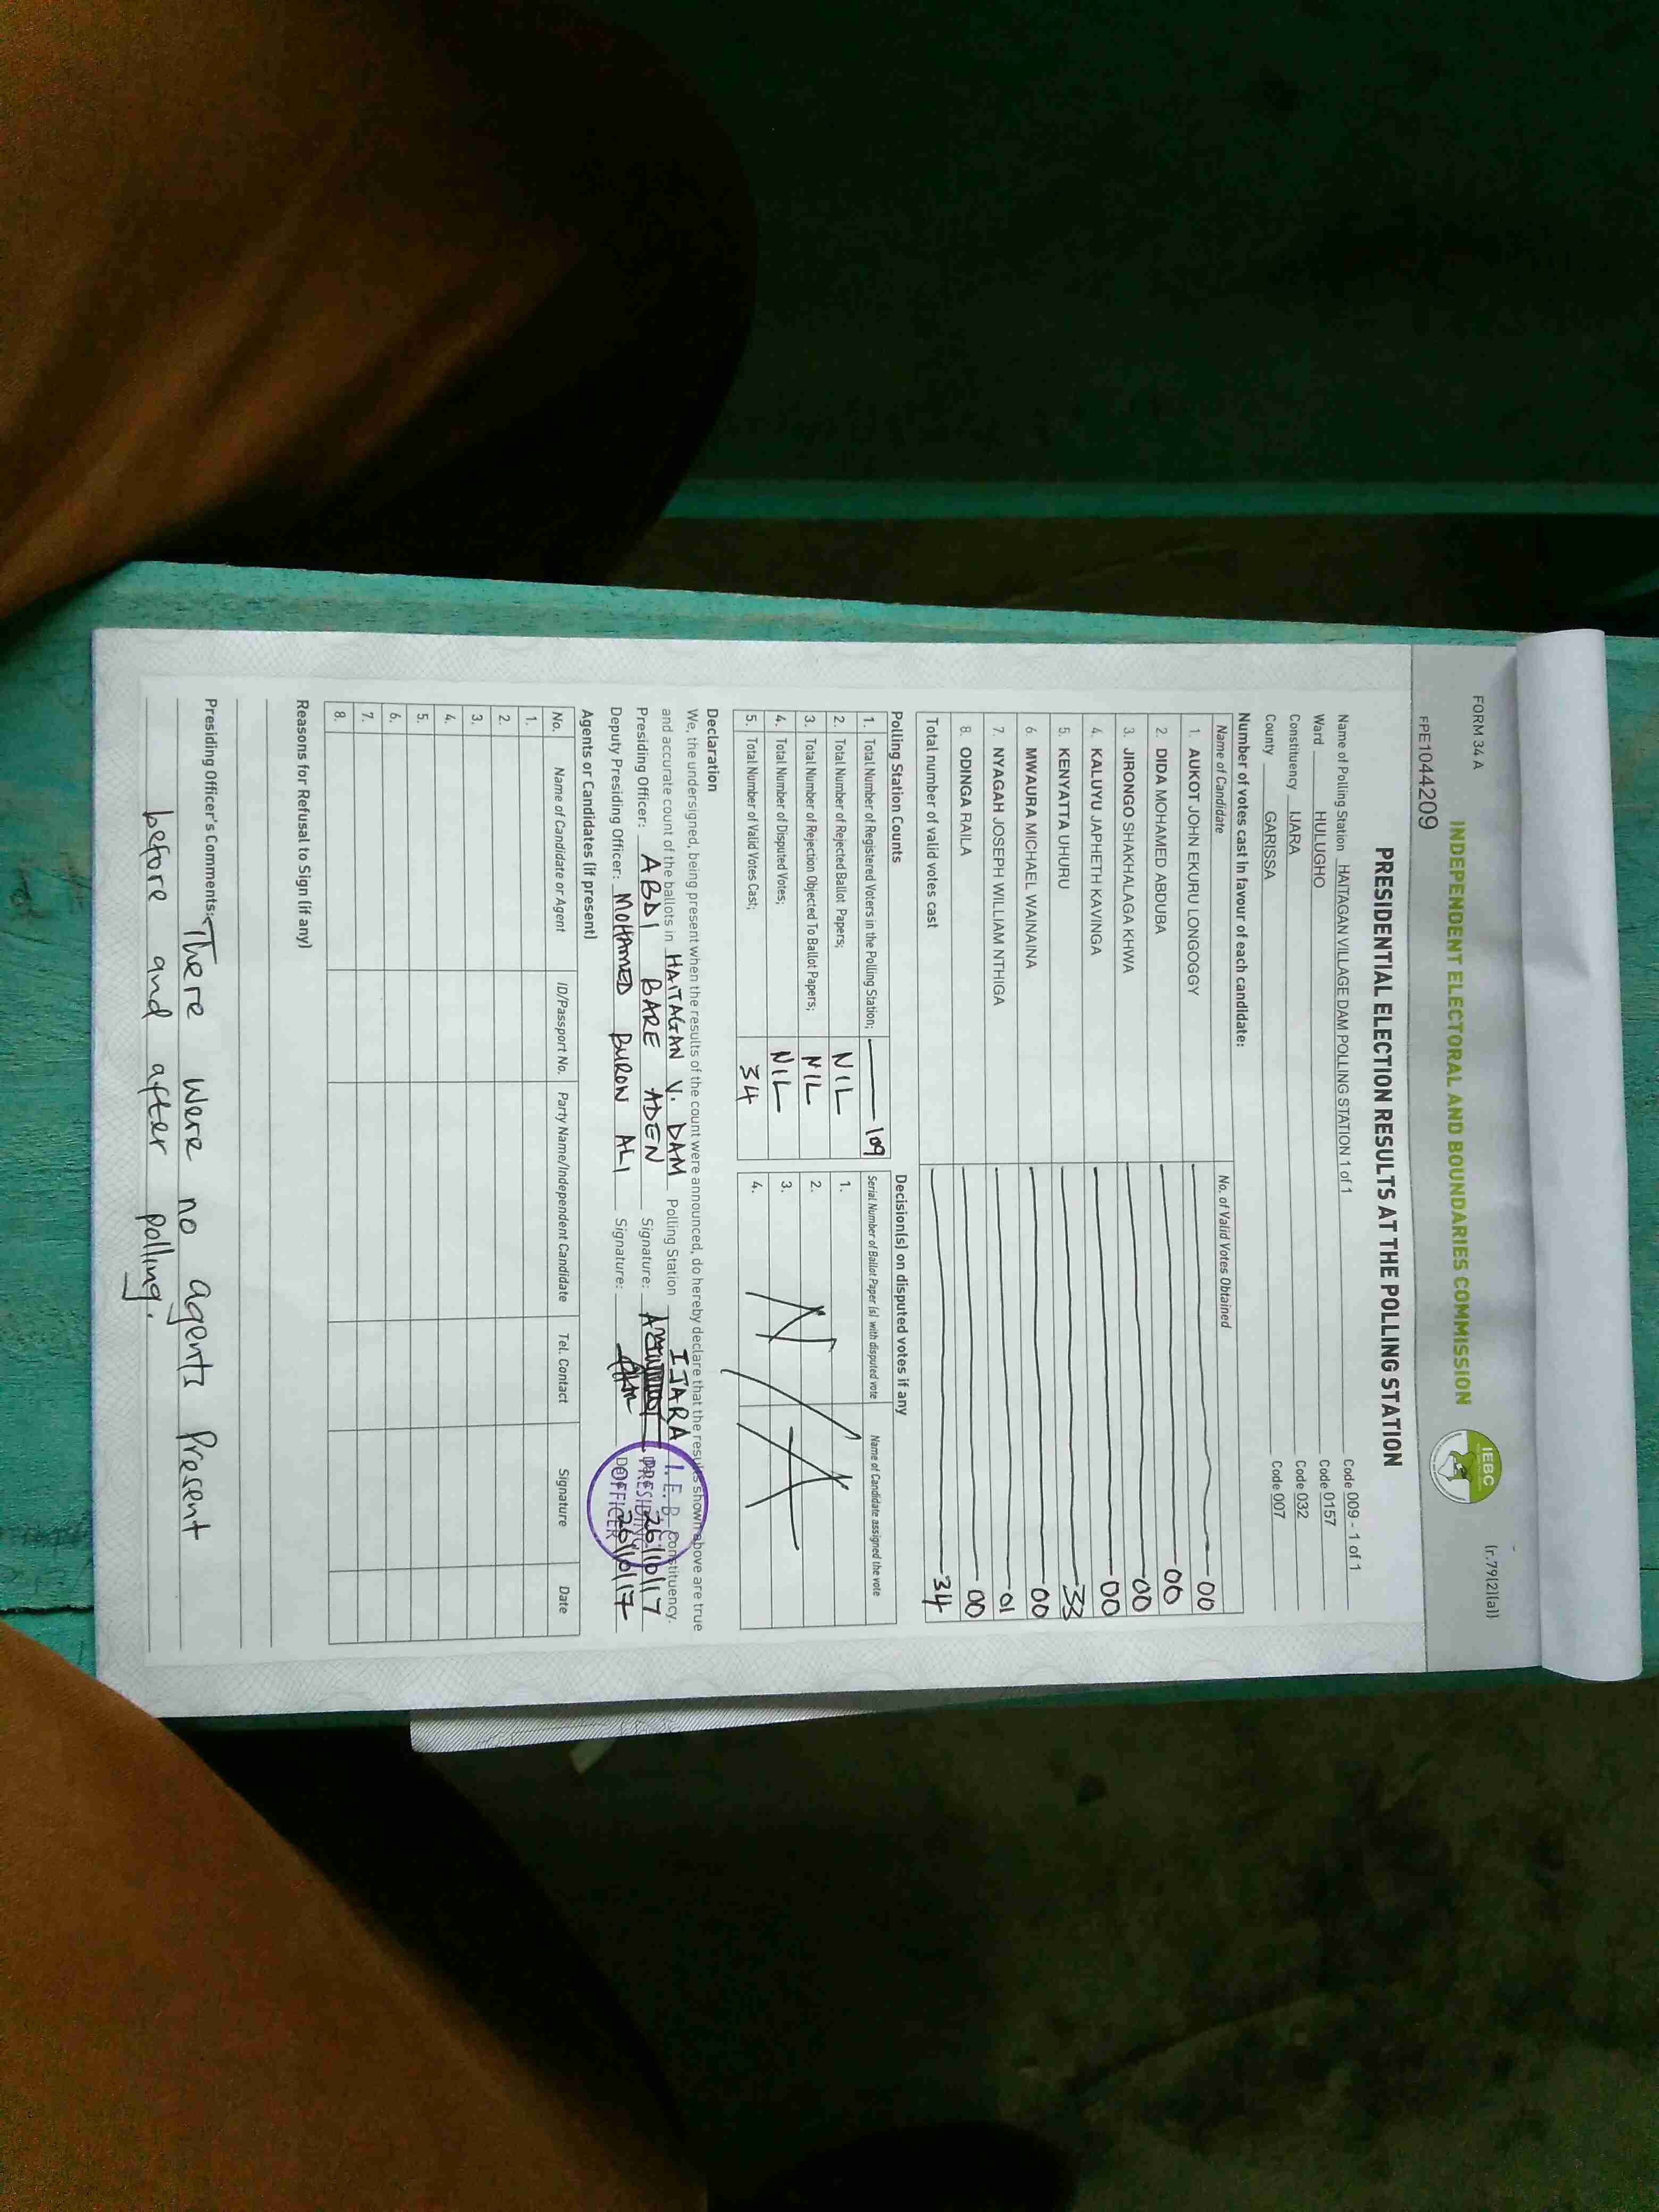 FORM 34 A
(r.79(2)(a))
INDEPENDENT ELECTORAL AND BOUNDARIES COMMISSION
IEBC
FPE1044209
PRESIDENTIAL ELECTION RESULTS AT THE POLLING STATION
Name of Polling Station HAITAGAN VILLAGE DAM POLLING STATION 1 of 1 Code 009 - 1 of 1
Ward HULUGHO Code 0157
Constituency IJARA Code 032
County GARISSA Code 007
Number of votes cast in favour of each candidate:
Name of Candidate No. of Valid Votes Obtained
1. AUKOT JOHN EKURU LONGOGGY 00
2. DIDA MOHAMED ABDUBA 00
3. JIRONGO SHAKHALAGA KHWA 00
4. KALUYU JAPHETH KAVINGA 00
5. KENYATTA UHURU 33
6. MWAURA MICHAEL WAINAINA 00
7. NYAGAH JOSEPH WILLIAM NTHIGA 01
8. ODINGA RAILA 00
Total number of valid votes cast 34
Polling Station Counts
1. Total Number of Registered Voters in the Polling Station; 109
2. Total Number of Rejected Ballot Papers; NIL
3. Total Number of Rejection Objected To Ballot Papers; NIL
4. Total Number of Disputed Votes; NIL
5. Total Number of Valid Votes Cast; 34
Decision(s) on disputed votes if any
Serial Number of Ballot Paper (s) with disputed vote Name of Candidate assigned the vote
1.
2.
3.
4.
N/A
Declaration
We, the undersigned, being present when the results of the count were announced, do hereby declare that the results shown above are true
and accurate count of the ballots in HAITAGAN V. DAM Polling Station IJARA Constituency.
Presiding Officer: ABDI BARE ADEN Signature: 26/10/17
Deputy Presiding Officer: MOHAMED BUROW ALI Signature: 26/10/17
I.E.B
PRESIDING
OFFICER
Agents or Candidates (if present)
No. Name of Candidate or Agent ID/Passport No. Party Name/Independent Candidate Tel. Contact Signature Date
1.
2.
3.
4.
5.
6.
7.
8.
Reasons for Refusal to Sign (if any)
Presiding Officer's Comments: There were no agents Present
before and after polling.